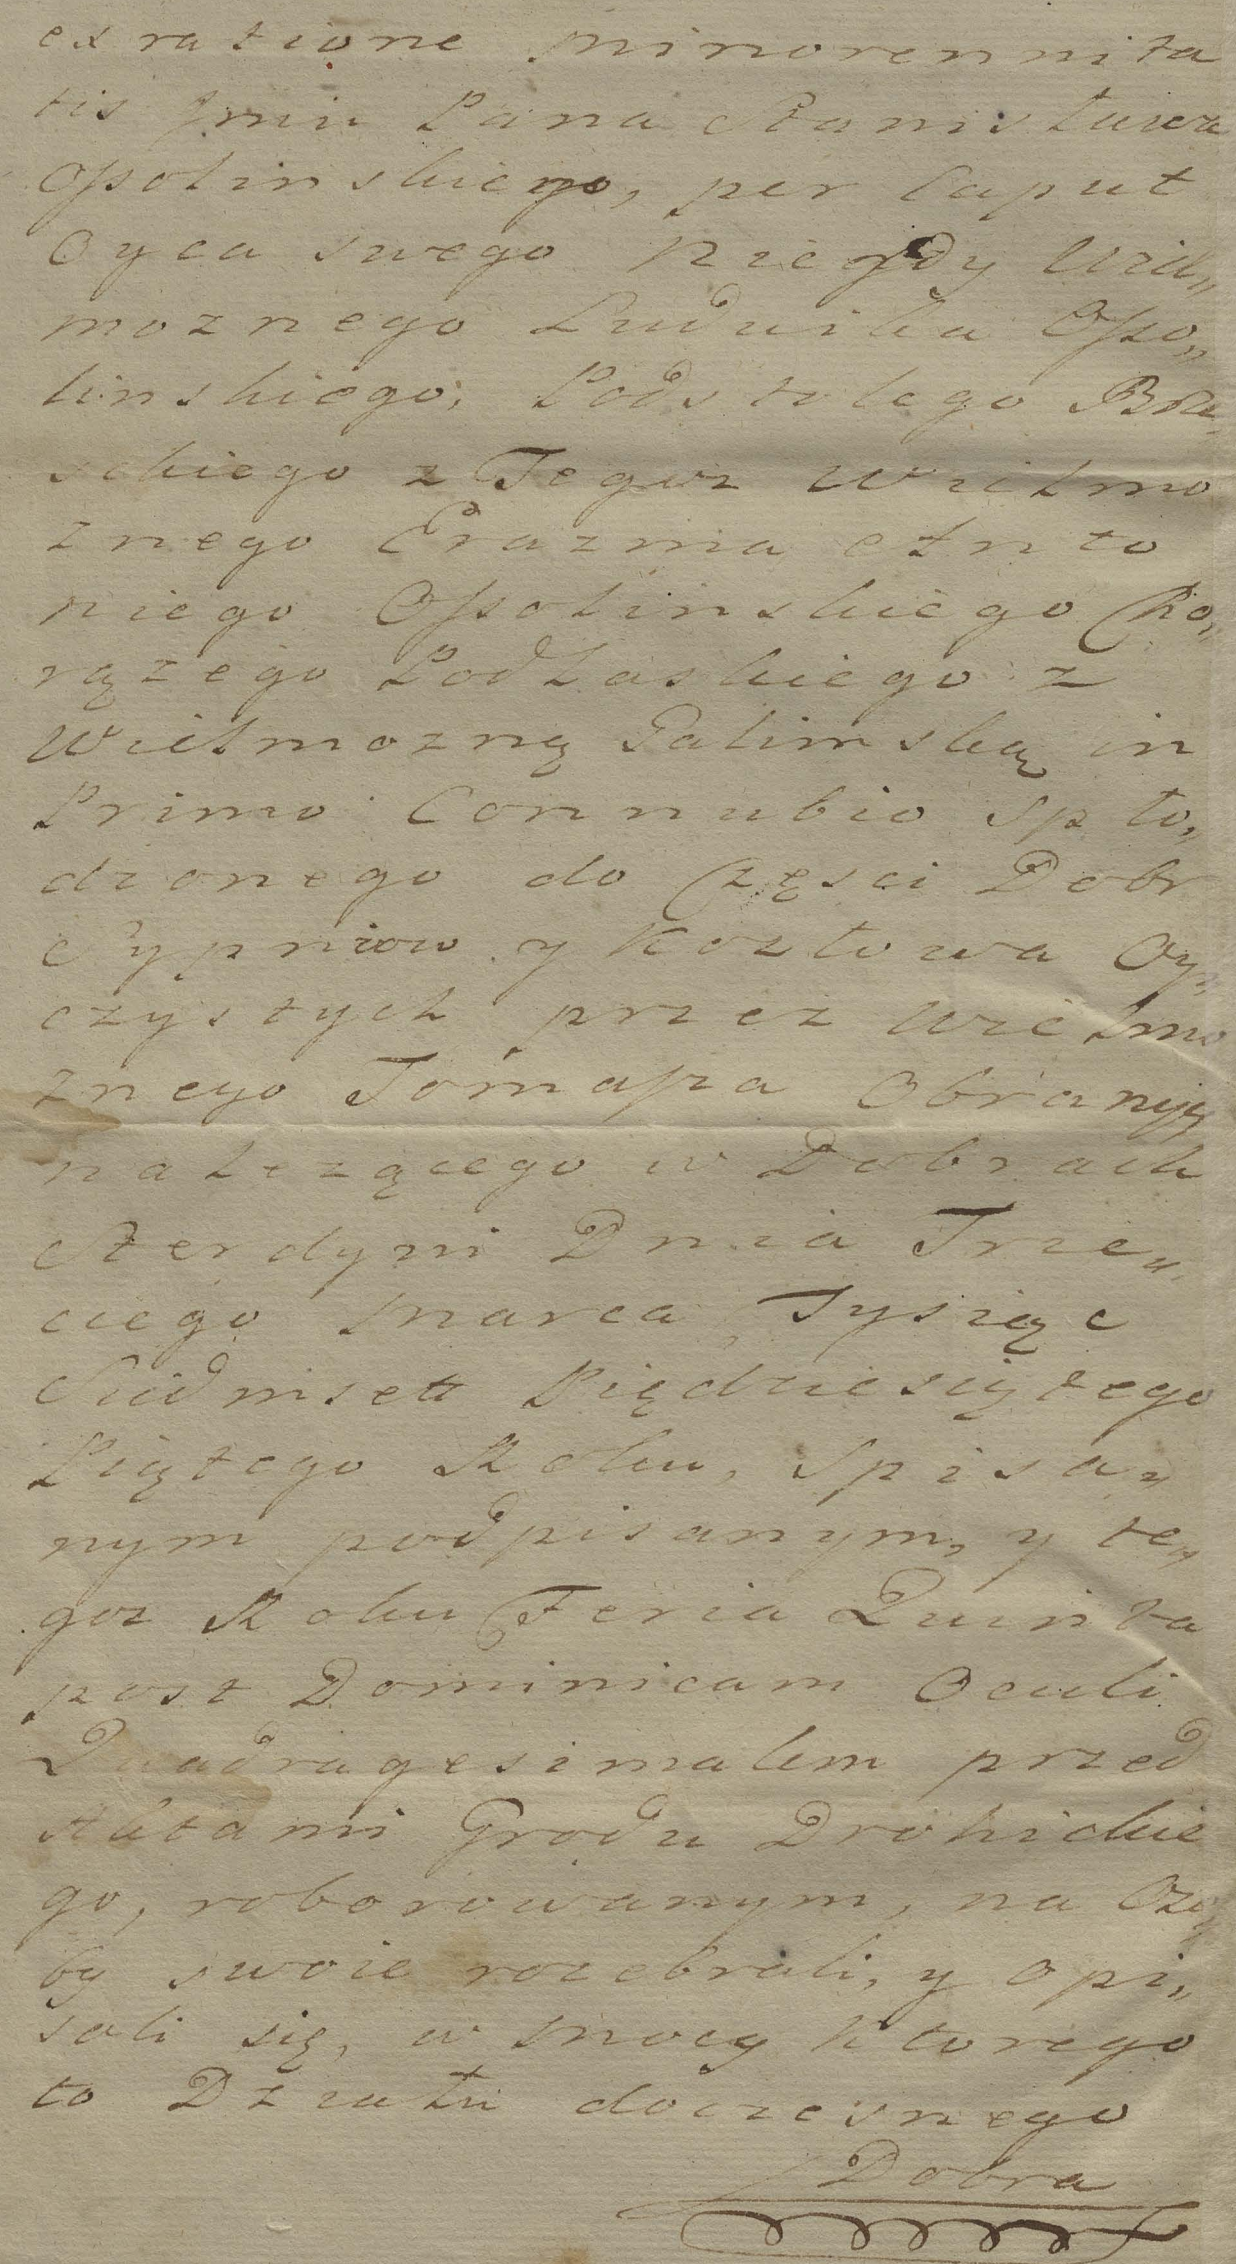 ex ratione minorennita
tis Jmci Pana Stanisława
Ossolinskiego, per Caput
Oyca swego niegdy Wiel„
moznego Ludwika Osso„
linskiego, Podstolego Bra„
sckiego z Tegoz Wielmo
znego Erazma Anto
niego Ossolinskiego Cho„
rązego Podlaskiego z
Wielmozną Galimską in
Primo Connubio spło„
dzonego do Częsci Dobr
Sypniow y Kozłowa Oy„
czystych przez Wielmo
znego Tomasza
nalezącego w Dobrach
Sterdyni Dnia Trze„
ciego Marca Tysiąc
Siedmset Pięćdziesiątego
Piątego Roku, Spisa„
nym podpisanym, y te„
goz Roku Feria Quinta
post Dominicam Oculi
Quadragesimalem przed
Aktami Grodu Drohickie
go, roborowanym, na Oso„
by swoie rozebrali, y opi„
sali się, w mocy ktorego
to Działu doczesnego
Dobra